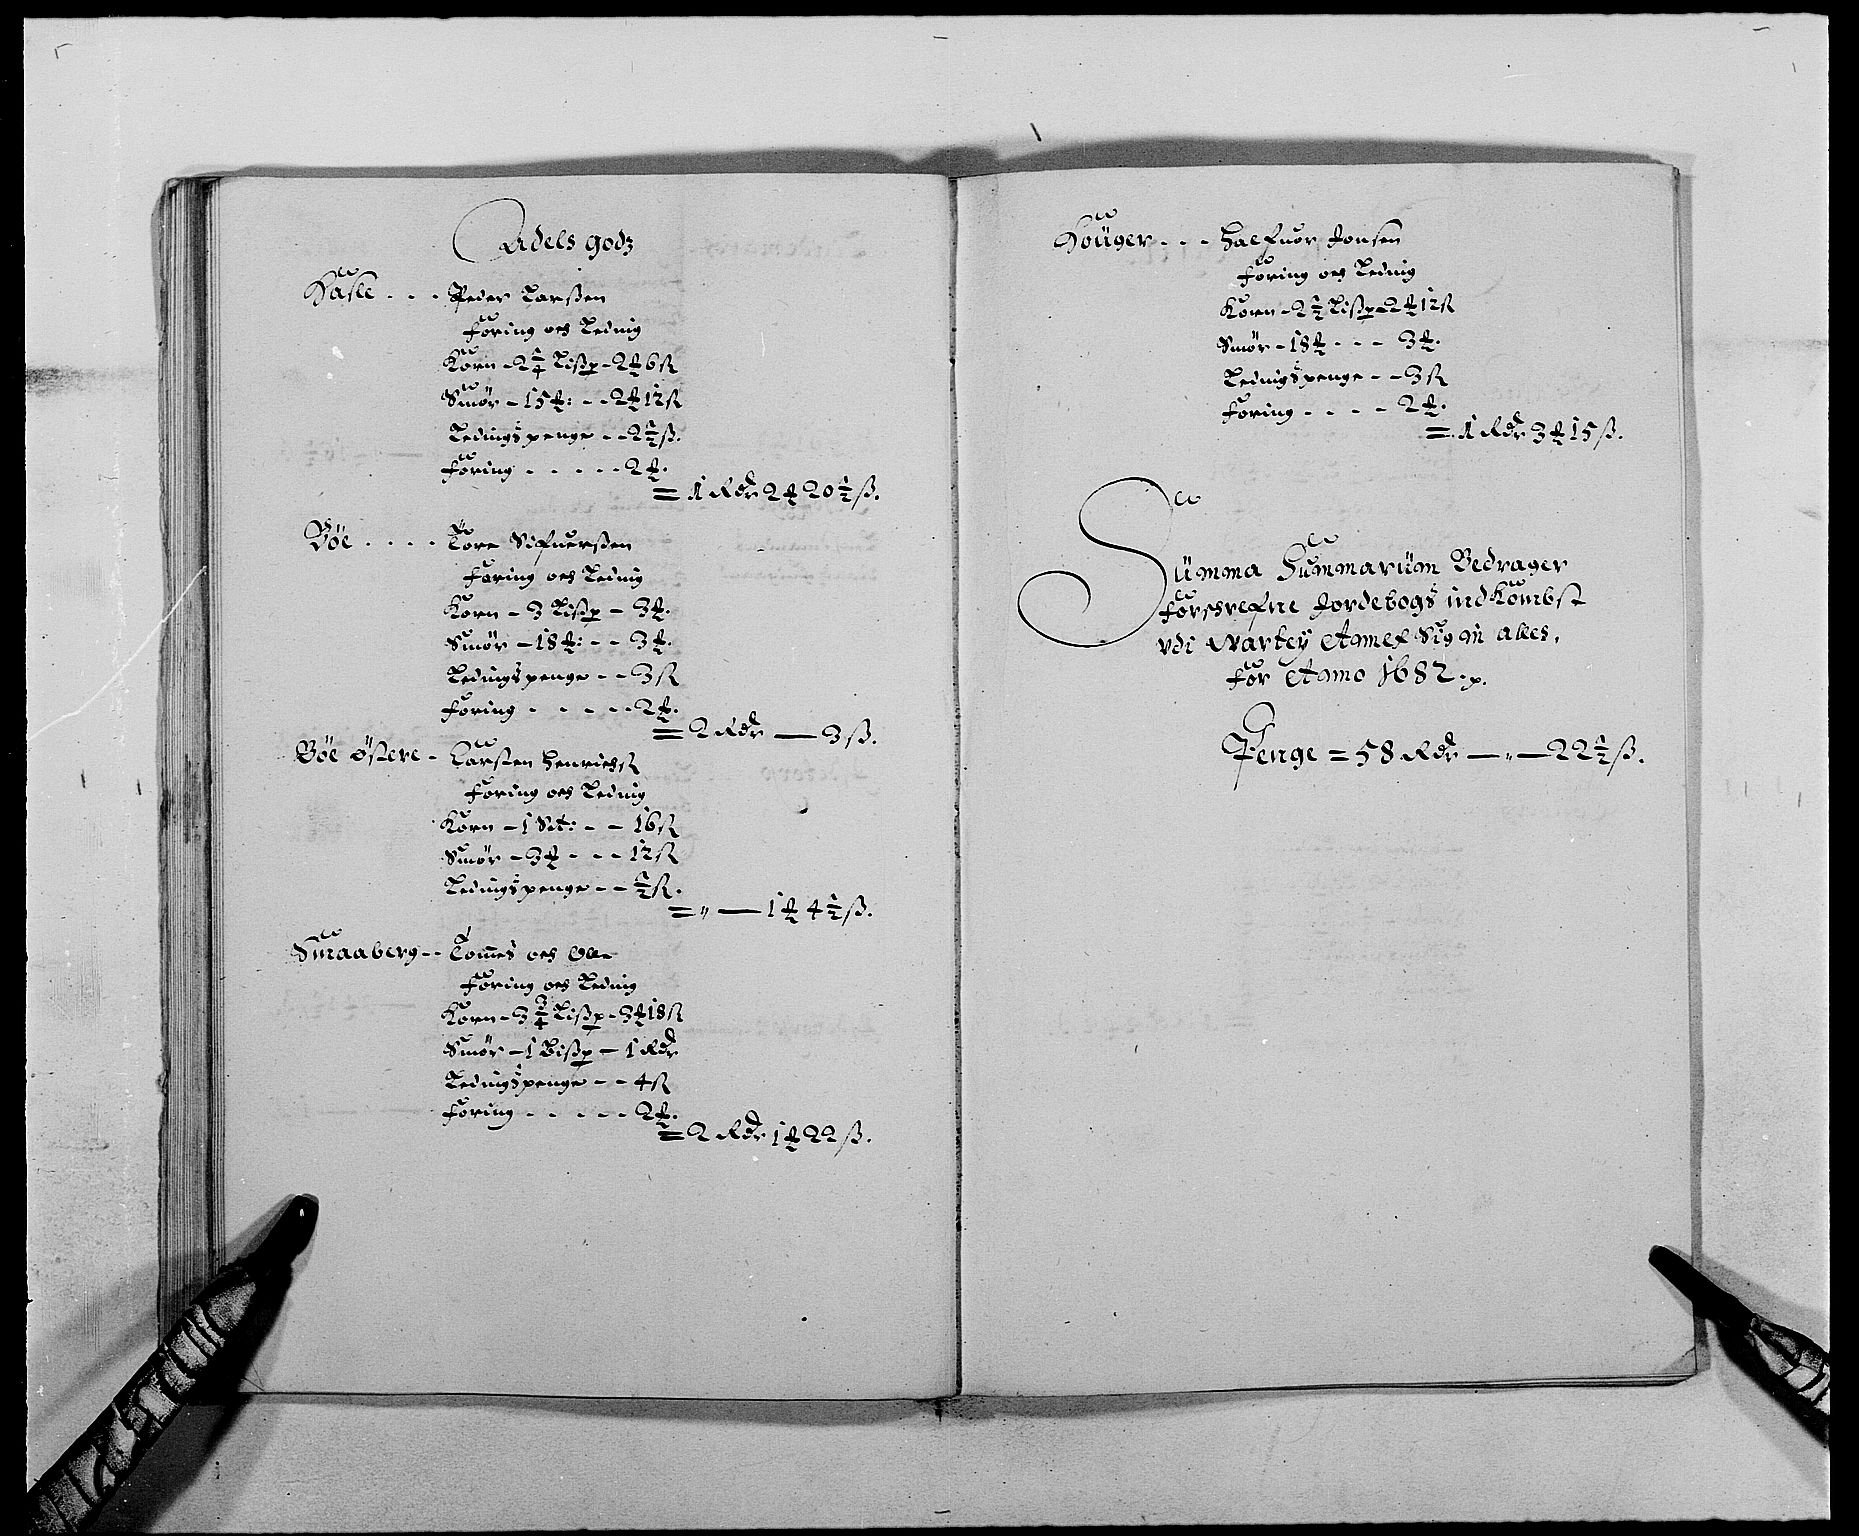 Adels godz
Hasle - - - Peder Larßen
Foring och Leding
Korn - 2 1/4 Lißp - 2 ℔ 6 ß
Smør - 15 ℔: - - 2 ℔ 12 ß
Ledingspenge - - 2 1/2 ß.
Foring - - - - - 2 ℔.
= 1 Rdr 2 ℔ 20 1/2 ß.
Böe - - - - Tore Sifuerßen
Foring och Leding
Korn - 3 Lißp - 3 ℔.
Smør - 18 ℔: - - 3 ℔.
Ledingspenge - - 3 ß
Foring - - - - - 2 ℔.
= 2 Rdr — 3 ß.
Böe Østere - Larßen Henrichß
Foring och Leding
Korn - 1 Set: - - 16 ß
Smør - 3 ℔ - - - 12 ß
Ledingspenge - - 1/2 ß.
= „ — 1 ℔ 4 1/2 ß.
Smaaberg - - Tomes och Ole
Foring och Leding
Korn - 3 3/4 Lißp - 3 ℔ 18 ß
Smør - 1 Bißp - 1 Rdr
Ledingspenge - - 4 ß
Foring - - - - - 2 ℔.
= 2 Rdr 1 ℔ 22 ß.
Houger - - - Halfuor Jonsen
Foring och Leding
Korn - 2 1/2 Lißp - 2 ℔ 12 ß
Smør - 18 ℔ - - - 3 ℔.
Ledingspenge - - 3 ß
Foring - - - - 2 ℔.
= 1 Rdr 3 ℔ 15 ß.
Summa Summarum Bedrager
forschrefne Jordebogs indKombst
udi alles,
for Anno 1682.
Penge = 58 Rdr — „ — 22 1/2 ß.